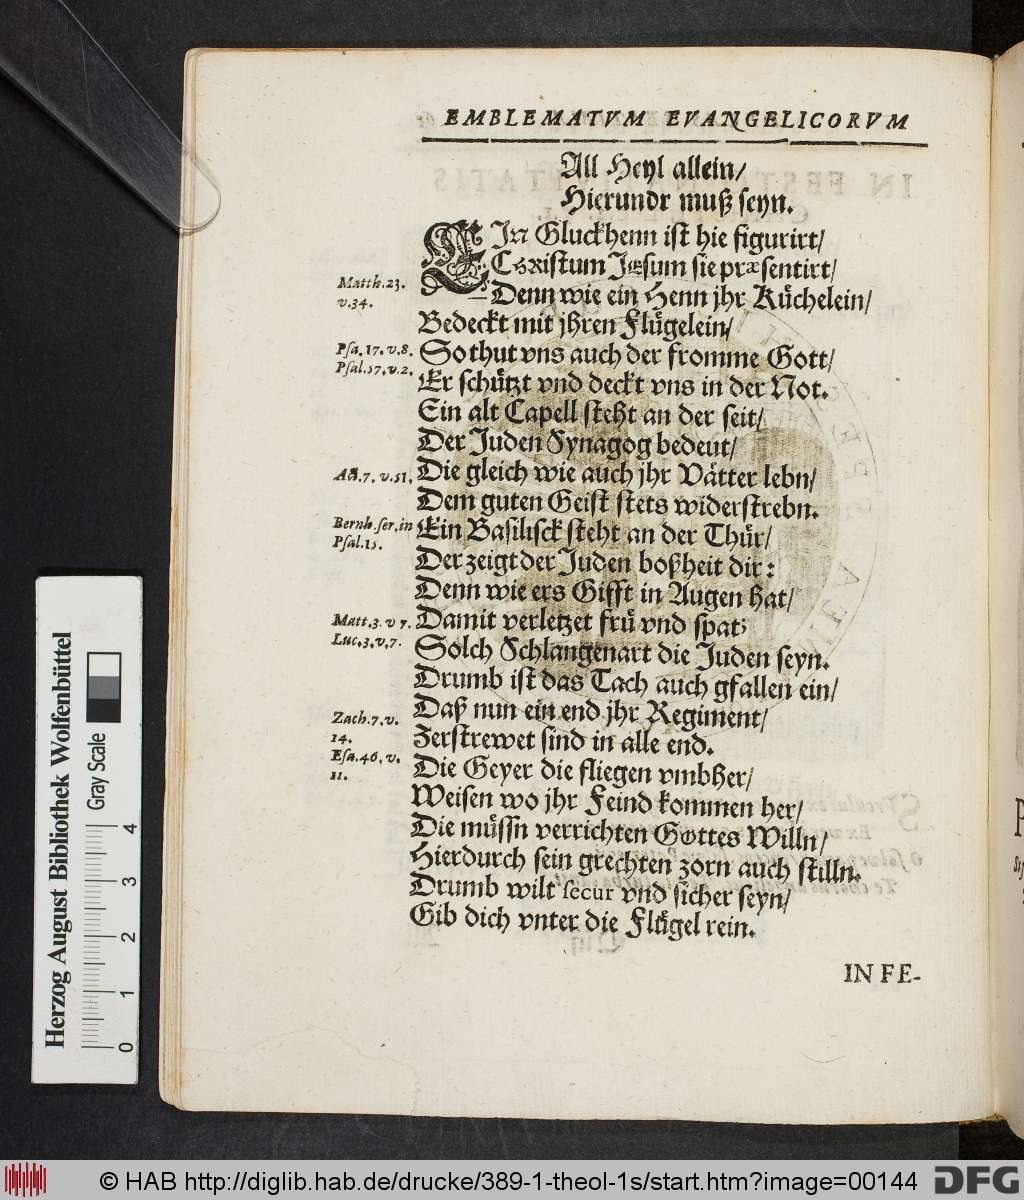 EMBLEMATVM EVANGELICORVM
All Heyl allein/
Hierundr muß seyn.
EIn Gluckhenn ist hie figurirt/
CHRistum JEsum sie præsentirt/
Matth.23.
v.34.
Denn wie ein Henn jhr Küchelein/
Bedeckt mit jhren Flügelein/
Psa.17.v.8.
Psal.57.v.2.
So thut vns auch der fromme Gott/
Er schützt vnd deckt vns in der Not.
Ein alt Capell steht an der seit/
Der Juden Synagog bedeut/
Act.7.v.51.
Die gleich wie auch jhr Vätter lebn/
Dem guten Geist stets widerstrebn.
Bernh.ser.in
Psal.15.
Ein Basilisck steht an der Thür/
Der zeigt der Juden boßheit dir:
Denn wie ers Gifft in Augen hat/
Matt.3.v 7.
Luc.3.v.7.
Damit verletzet frü vnd spat;
Solch Schlangenart die Juden seyn.
Drumb ist das Tach auch gfallen ein/
Daß nun ein end jhr Regiment/
Zach.7.v.
14.
Zerstrewet sind in alle end.
Esa.46.v.
11.
Die Geyer die fliegen vmbher/
Weisen wo jhr Feind kommen her/
Die müssn verrichten Gottes Willn/
Hierdurch sein grechten zorn auch stilln.
Drumb wilt secur vnd sicher seyn/
Gib dich vnter die Flügel rein.
IN FE-
Herzog August Bibliothek Wolfenbüttel
Gray Scale
0 1 2 3 4
© HAB http://diglib.hab.de/drucke/389-1-theol-1s/start.htm?image=00144
DFG